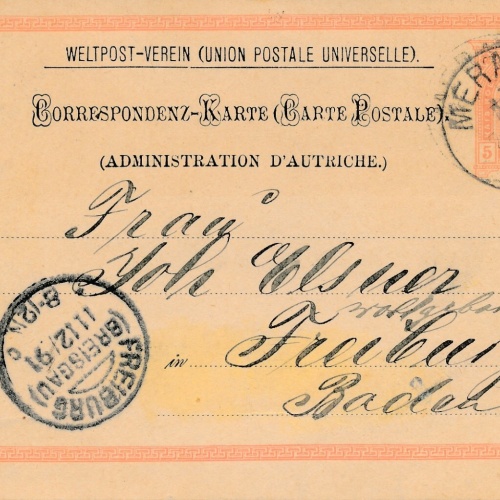 WELTPOST-VEREIN (UNION POSTALE UNIVERSELLE).
CORRESPONDENZ-KARTE (CARTE POSTALE).
(ADMINISTRATION D'AUTRICHE.)
MERA
5
Frau
Joh Elsner
in Freibur
Baden
FREIBURG
(BREISGAU)
11.12.91
8-12N
c